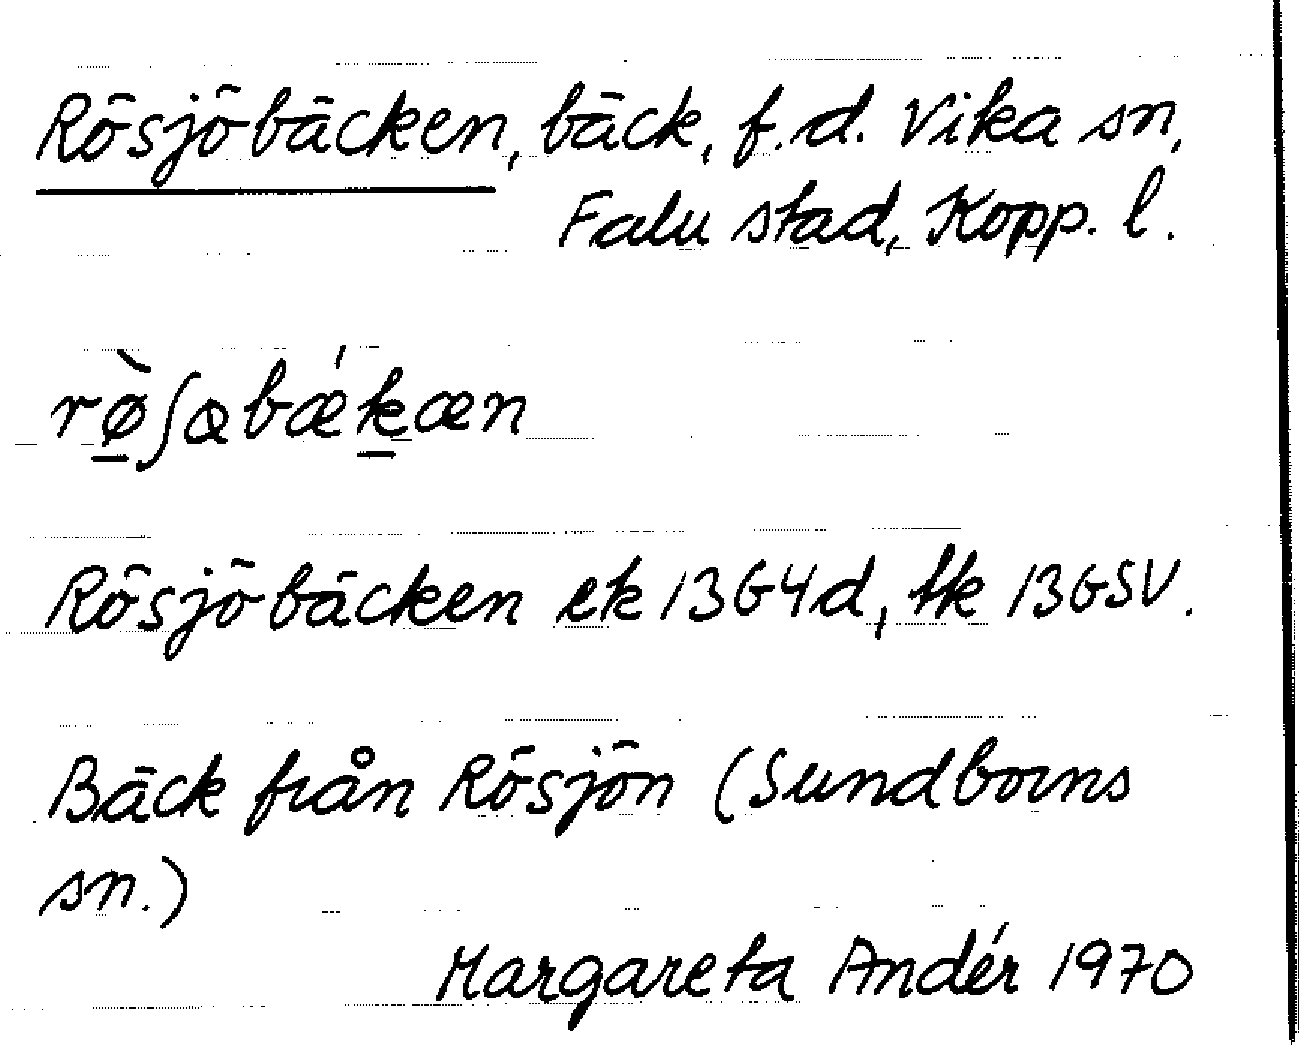 Rösjöbäcken, bäck, f.d. Vika sn,
Falu stad, Kopp. l.
rø̲̀ʃꝹbǽk̲æn
Rösjöbäcken ek 13G4d, tk 13GSV.
Bäck från Rösjön (Sundborns
sn.)
Margareta Andér 1970